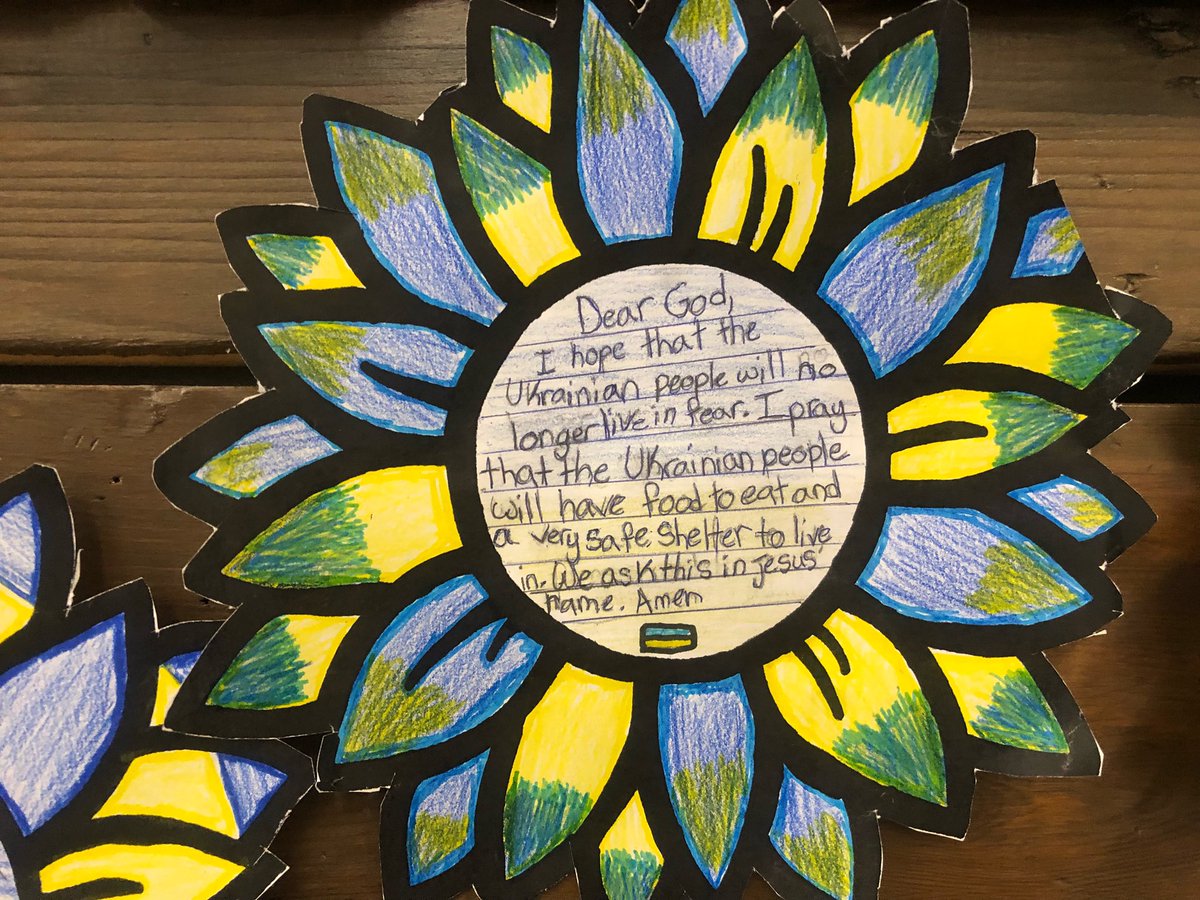 Dear God,
I hope that the
Ukrainian people will no
longer live in fear. I pray
that the Ukrainian people
will have food to eat and
a very safe shelter to live
in. We ask this in Jesus'
name. Amen